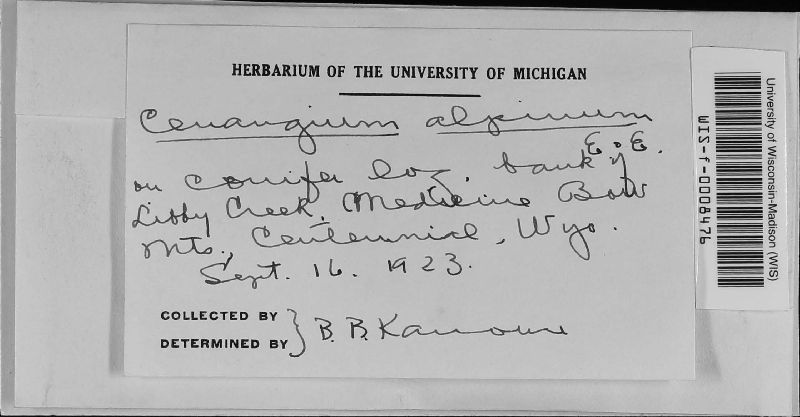 HERBARIUM OF THE UNIVERSITY OF MICHIGAN
Cenangium alpinum
E. & E.
on conifer log, bank of
Libby Creek, Medicine Bow
Mts., Centennial, Wyo.
Sept. 16. 1923.
COLLECTED BY
DETERMINED BY } B. B. Kanouse
University of Wisconsin-Madison (WIS)
WIS-f-0008476